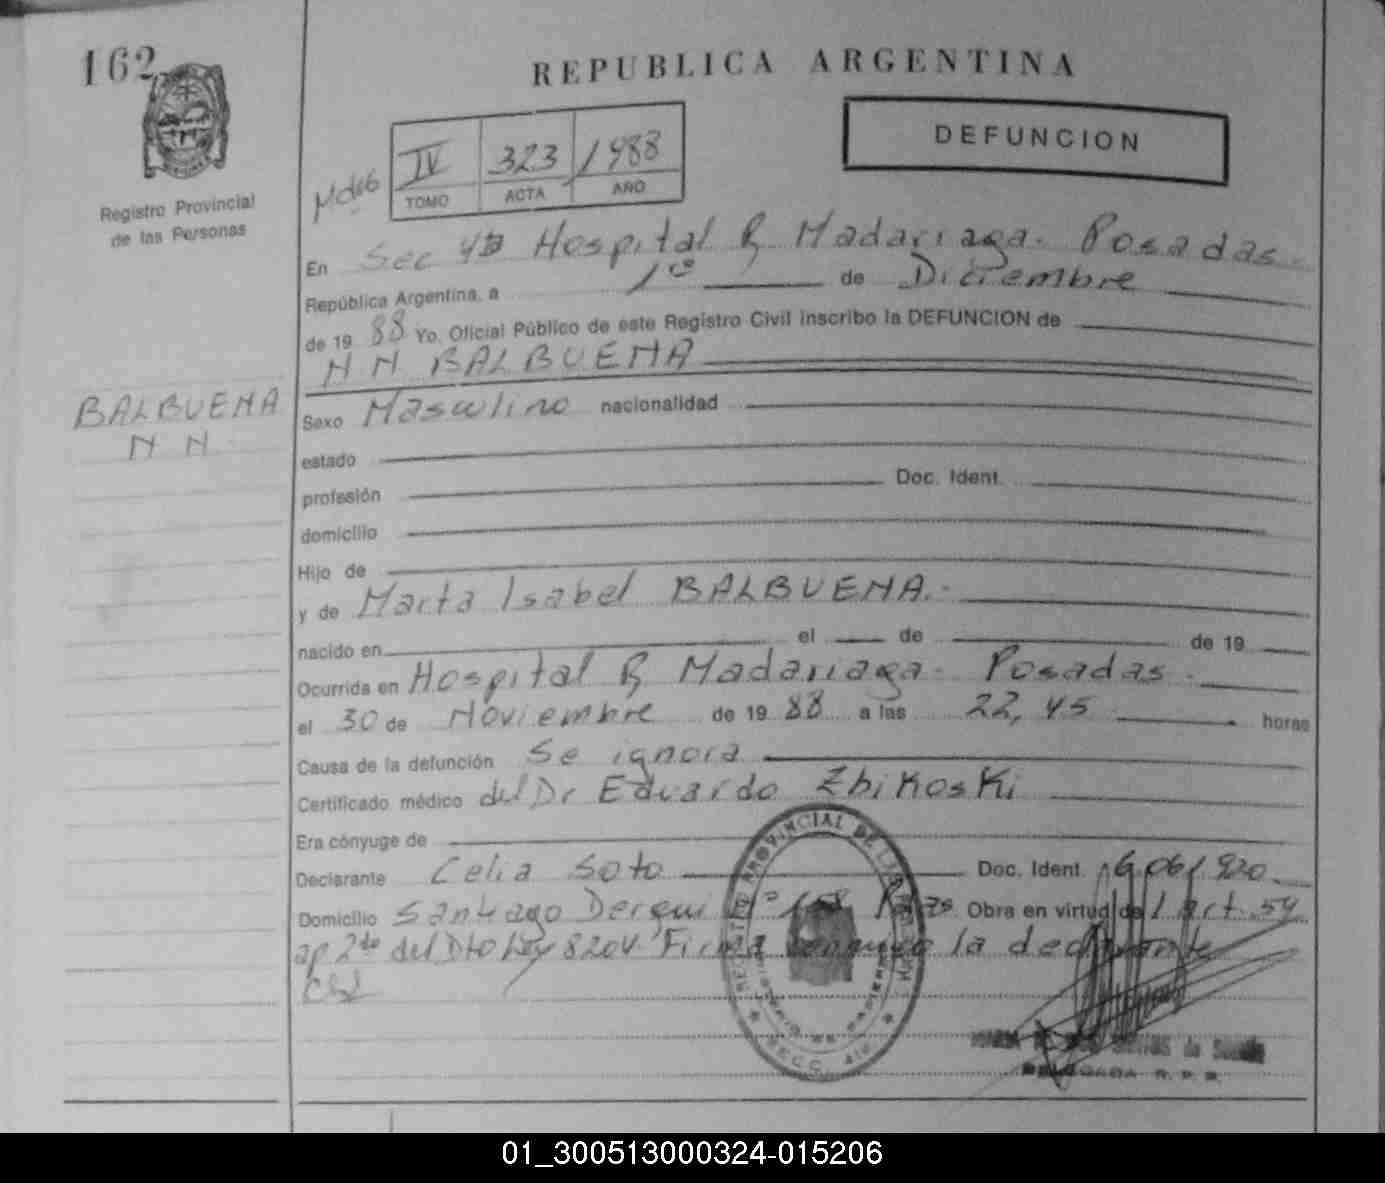 162
REPUBLICA ARGENTINA
DEFUNCION
IV 323 1988
TOMO ACTA AÑO
Registro Provincial
de las Personas
En Sec 4ta Hospital R Madariaga - Posadas
República Argentina, a 1º de Diciembre
de 19 88 Yo, Oficial Público de este Registro Civil inscribo la DEFUNCION de
N N BALBUENA
BALBUENA
N N
Sexo Masculino nacionalidad
estado
profesión Doc. Ident.
domicilio
Hijo de
y de Marta Isabel BALBUENA.-
nacido en el de de 19
Ocurrida en Hospital R Madariaga - Posadas -
el 30 de Noviembre de 19 88 a las 22,45 horas
Causa de la defunción Se ignora
Certificado médico del Dr Eduardo Zbikoski
Era cónyuge de
Declarante Celia Soto Doc. Ident.
Domicilio Santiago Derqui Obra en virtud de l art. 54
ap 2do del Dto Ley 8204 Firma la declarante
REGISTRO PROVINCIAL DE LAS PERSONAS
SECC. 4ta.
DELEGADA R. P. P.
01_300513000324-015206